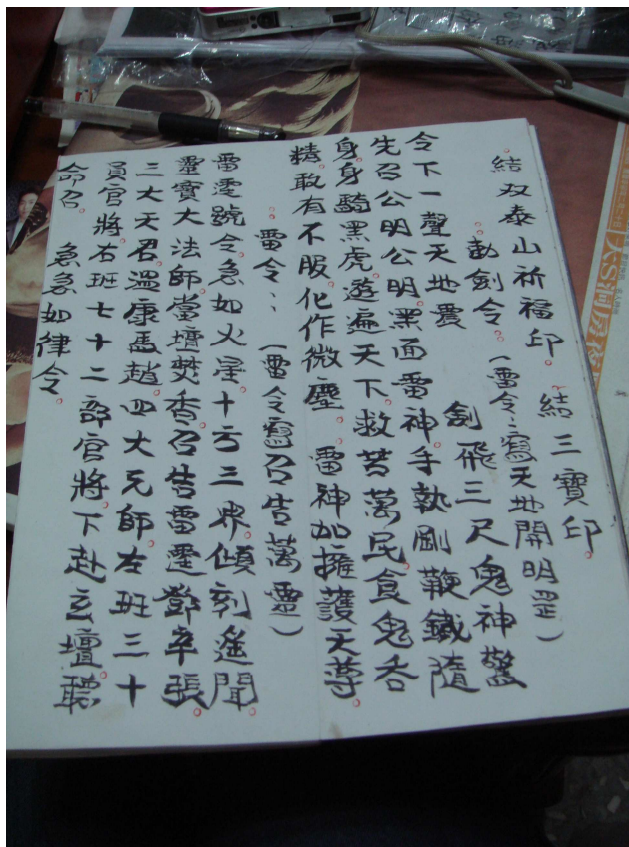 結双泰山祈福印。 結三寶印。
勅劍令。(雷令:寫天地開明罡)
令下一聲天地震 劍飛三尺鬼神驚
先召公明公明黑面雷神。手執剛鞭鐵隨
身身騎黑虎遊遍天下。救苦萬民食鬼吞
精敢有不服化作微塵。 雷神加擁護天尊。
雷令:(雷令寫召告萬靈)
雷霆號令。急如火星。十方三界傾刻遙聞。
靈寶大法師當壇焚香。召告雷霆鄧辛張。
三大天君。溫康馬趙四大元師。左班三十
員官將。右班七十二部官將。下赴玄壇聽
命召。 急急如律令。